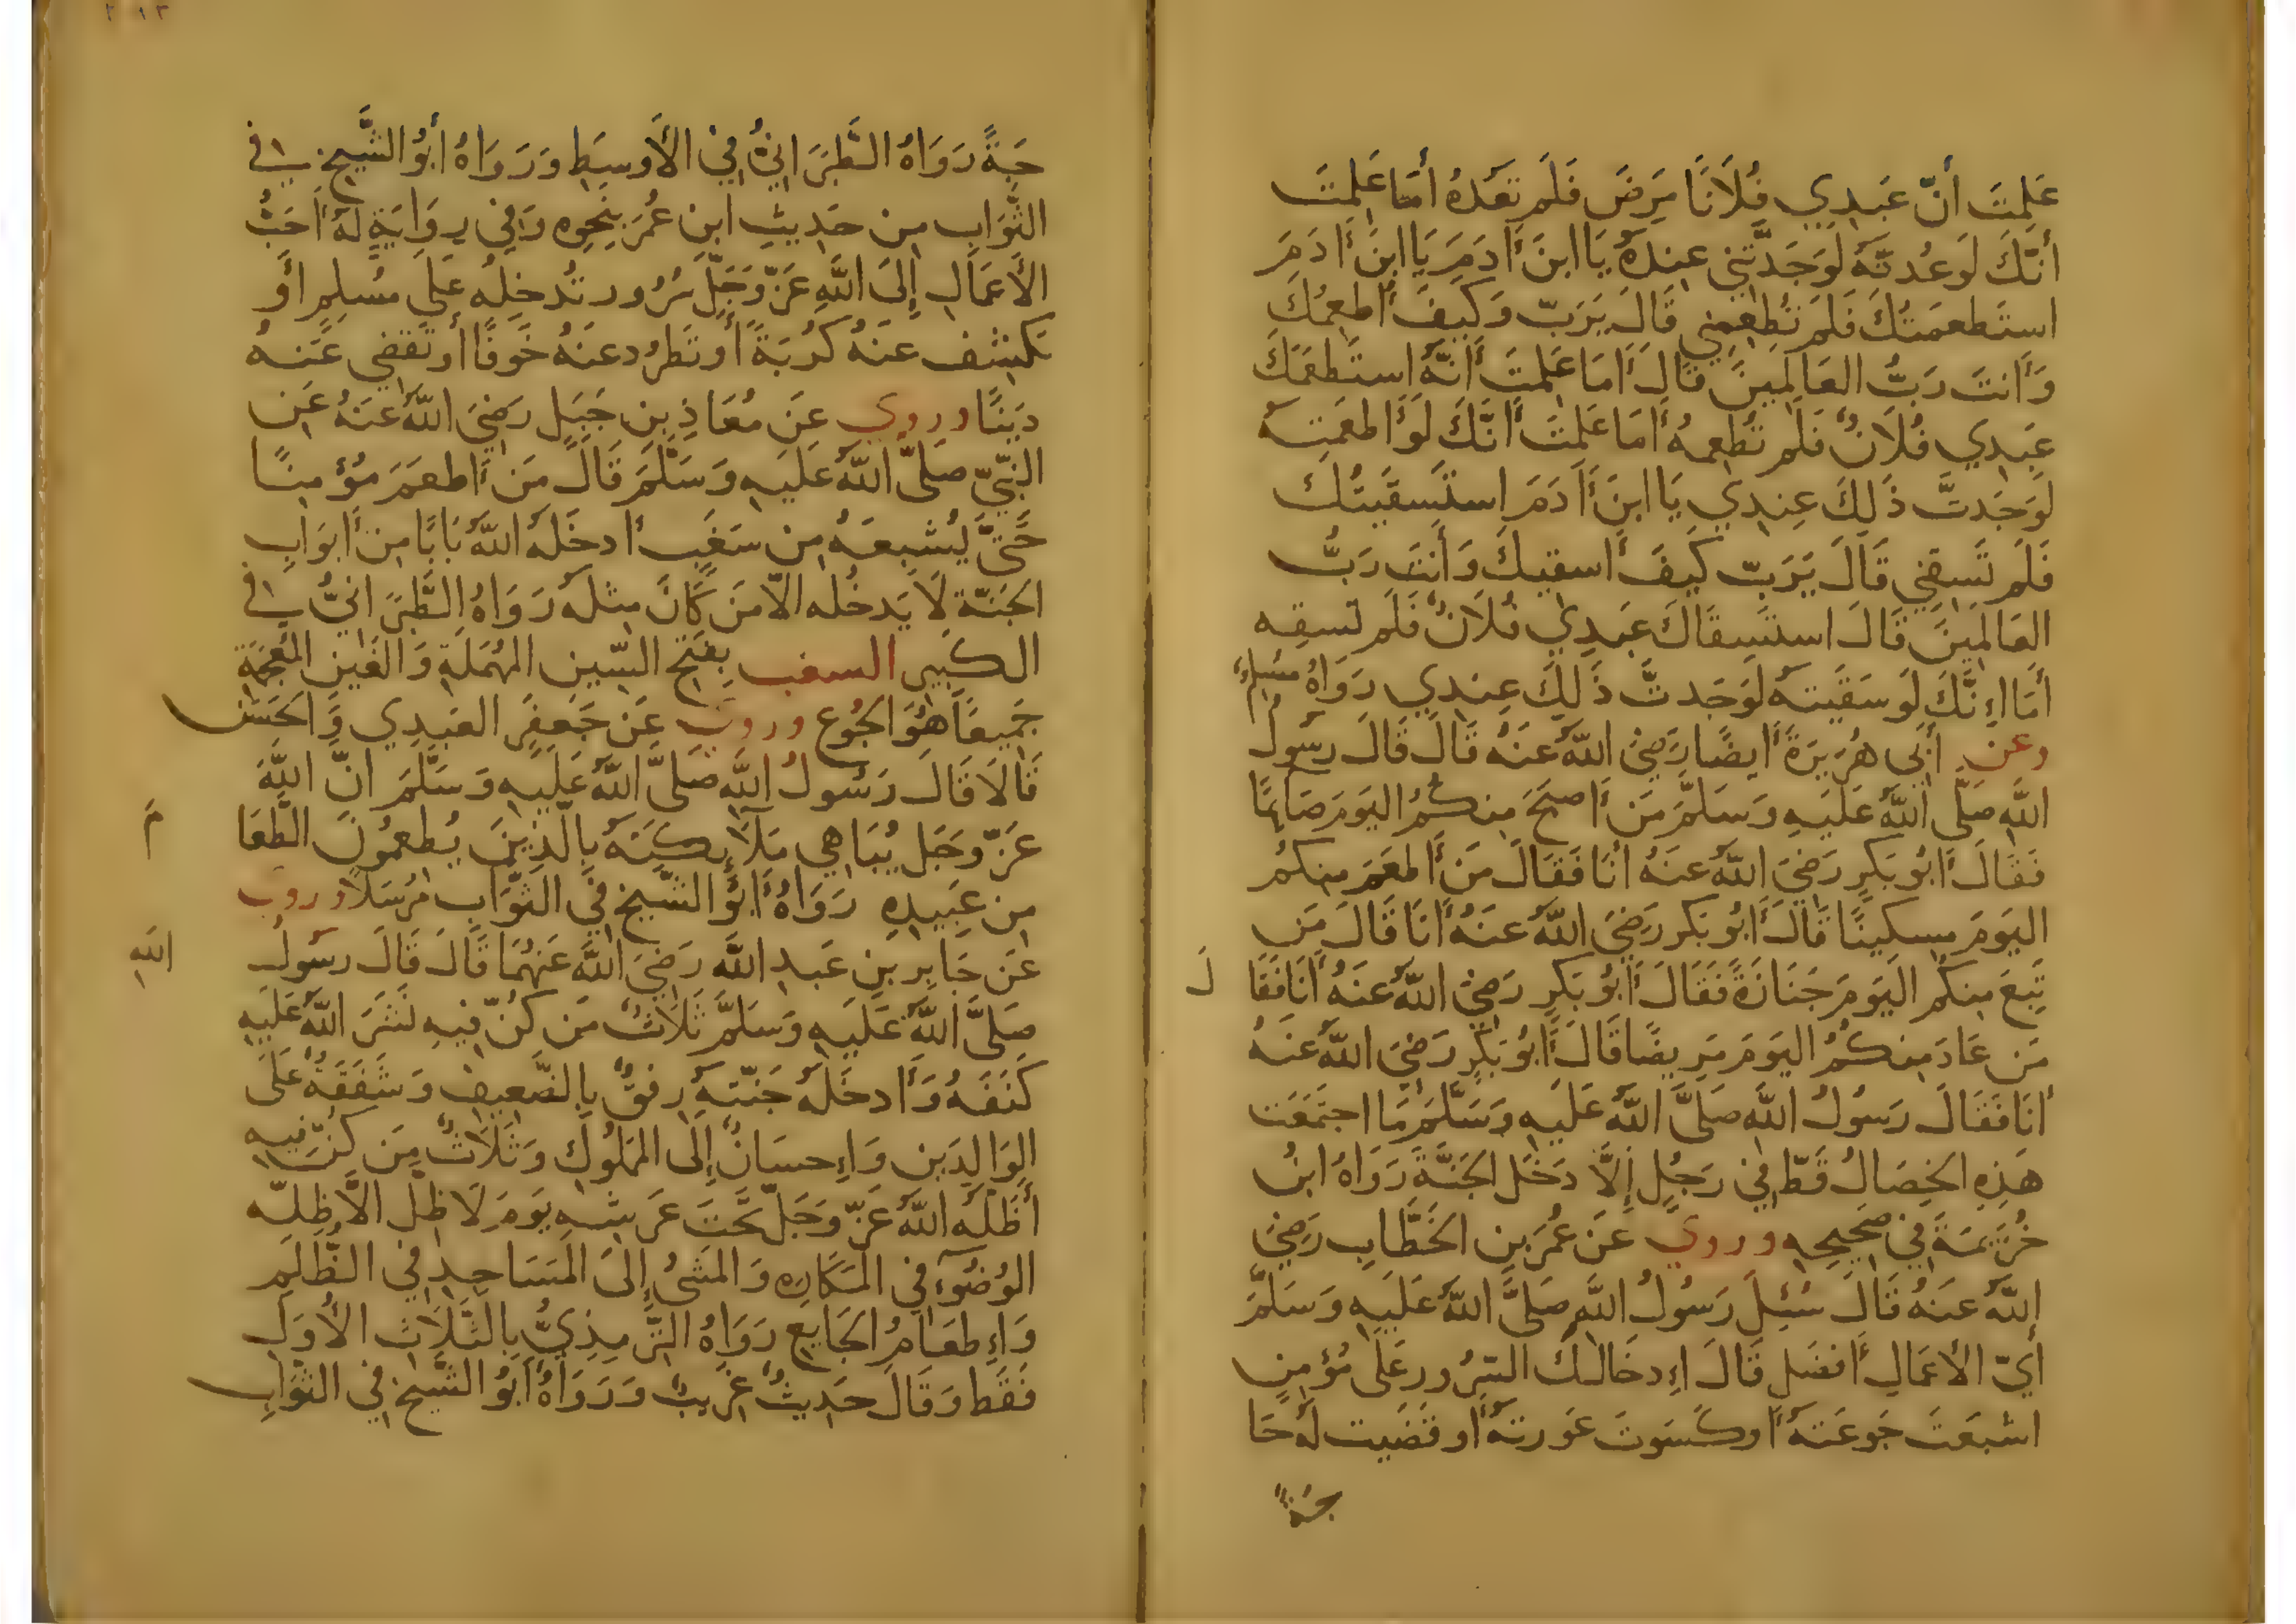 عَلِمتَ أَنّ عَبدِي فُلَانًا مَرِضَ فَلَم تَعُدهُ أَمَا عَلِمتَ
أَنَّكَ لَو عُدتَّهُ لَوَجَدتَّنِي عِندَهُ يَا ابنَ أَدَمَ يَا ابنَ أَدَمَ
استَطعَمتُكَ فَلَم تُطعِمنِي قَالَ يَرَبّ وَكَيفَ أُطعِمُكَ
وَأَنتَ رَبُّ العَالَمِينَ قَالَ أَمَا عَلِمتَ أَنَّهُ استَطعَمَكَ
عَبدِي فُلَانٌ فَلَم تُطعِمهُ أَمَا عَلِمتَ أَنَّكَ لَو أَطعَمتَهُ
لَوَجَدتَّ ذَلِكَ عِندِي يَا ابنَ أَدَمَ استَسقَيتُكَ
فَلَم تَسقِنِي قَالَ يَرَبّ كَيفَ أَسقِيكَ وَأَنتَ رَبُّ
العَالَمِينَ قَالَ استَسقَاكَ عَبدِي فُلَانٌ فَلَم تَسقِه
أَمَا إِنَّكَ لَو سَقَيتَهُ لَوَجَدتَّ ذَلِكَ عِندِي رَوَاهُ مُسلِمٌ
وعن أَبِي هُرَيرَةَ أَيضًا رَضِيَ اللَّهُ عَنهُ قَالَ قَالَ رَسُولُ
اللَّهِ صَلَّى اللَّهُ عَلَيهِ وَسَلَّمَ مَن أَصبَحَ مِنكُمُ اليَومَ صَائِمًا
فَقَالَ أَبُو بَكرٍ رَضِيَ اللَّهُ عَنهُ أَنَا فَقَالَ مَن أَطعَمَ مِنكُم
اليَومَ مِسكِينًا قَالَ أَبُو بَكرٍ رَضِيَ اللَّهُ عَنهُ أَنَا قَالَ مَن
تَبِعَ مِنكُم اليَومَ جَنَازَةً فَقَالَ أَبُو بَكرٍ رَضِيَ اللَّهُ عَنهُ أَنَا فَقَا
لَ
مَن عَادَ مِنكُمُ اليَومَ مَرِيضًا قَالَ أَبُو بَكرٍ رَضِيَ اللَّهُ عَنهُ
أَنَا فَقَالَ رَسُولُ اللَّهِ صَلَّى اللَّهُ عَلَيهِ وَسَلَّمَ مَا اجتَمَعَت
هَذِهِ الخِصَالُ قَطّ فِي رَجُلٍ إِلَّا دَخَلَ الجَنَّةَ رَوَاهُ ابنُ
خُزَيمَةَ فِي صَحِيحِهِ وروي عَن عُمَرَ بنِ الخَطَّابِ رَضِيَ
اللَّهُ عَنهُ قَالَ سُئِلَ رَسُولُ اللَّهِ صَلَّى اللَّهُ عَلَيهِ وَسَلَّمَ
أَيّ الأَعمَالِ أَفضَلِ قَالَ إِدخَالُكَ السُّرُورَ عَلَى مُؤمِنٍ
اشبَعتَ جَوعَتَهُ أَو كَسَوتَ عَورَتَهُ أَو قَضَيت لَهُ حَا
جَةً
جَةً رَوَاهُ الطَّبَرَانِيُّ فِي الأَوسَطِ وَرَوَاهُ أَبُو الشَّيخِ في
الثَّوَابِ مِن حَدِيثِ ابنِ عُمَرَ بِنَحوِه وَفِي رِوَايَةٍ لَهُ أَحَبُّ
الأَعمَالِ إِلَى اللَّهِ عَزَّ وَجَلَّ سُرُور تُدخِلُهُ عَلَى مُسلِمٍ أَو
تَكشِف عَنهُ كُربَةً أَو تَطرُد عَنهُ خَوفًا أَو تَقضِي عَنهُ
دَينًا وروي عَن مُعَاذِ بنِ جَبَلٍ رَضِيَ اللَّهُ عَنهُ عَن
النَّبِيِّ صَلَّى اللَّهُ عَلَيهِ وَسَلَّمَ قَالَ مَن أَطعَمَ مُؤمِنًا
حَتَّى يُشبِعَهُ مِن سَغَبٍ أَدخَلَهُ اللَّهُ بَابًا مِن أَبوَابِ
الجَنَّةِ لَا يَدخُلُه الاّ مَن كَانَ مِثلَهُ رَوَاهُ الطَّبَرَانِيُّ في
الكَبِير السغب بِفَتحِ السِّينِ المُهمَلَةِ وَالغَينِ المُعجَمَةِ
جَمِيعًا هُوَ الجُوع وروي عَن جَعفَرٍ العَبدِي وَالحَسَن
قَالَا قَالَ رَسُولُ اللَّهِ صَلَّى اللَّهُ عَلَيهِ وَسَلَّمَ انَّ اللَّهَ
عَزّ وَجَل يُبَاهِي مَلَائِكَتَهُ بِالَّذِينَ يُطعِمُونَ الطَّعَا
مَ
مِن عَبِيدِهِ رَوَاهُ أَبُو الشَّيخِ فِي الثَّوَابِ مُرسَلًا وروي
عَن جَابِرِ بنِ عَبدِ اللَّه رَضِيَ اللَّهُ عَنهُمَا قَالَ قَالَ رَسُولُ
اللَّهِ
صَلَّى اللَّهُ عَلَيهِ وَسَلَّمَ ثَلَاثٌ مَن كُنّ فِيهِ نَشَرَ اللَّهُ عَلَيهِ
كَنَفَهُ وَأَدخَلَهُ جَنَّتَهُ رِفقٌ بِالضَّعِيفِ وَشَفَقَةٌ عَلَى
الوَالِدَينِ وَإِحسَانٌ إِلَى المَملُوكِ وَثَلَاثٌ مَن كُنّ فِيهِ
أَظَلَّهُ اللَّهُ عَزّ وَجَلّ تَحتَ عَرشِهِ يَومَ لَا ظِلّ الاَّ ظِلّه
الوُضُوء فِي المَكَارِهِ وَالمَشيُ إِلَى المَسَاجِدِ فِي الظُّلَمِ
وَإِطعَامُ الجَايِعِ رَوَاهُ التِّرمِذِيُّ بِالثَّلَاثِ الأُوَلِ
فَقَط وَقَالَ حَدِيثٌ غَرِيبٌ وَرَوَاهُ أَبُو الشَّيخِ فِي الثَّوَابِ